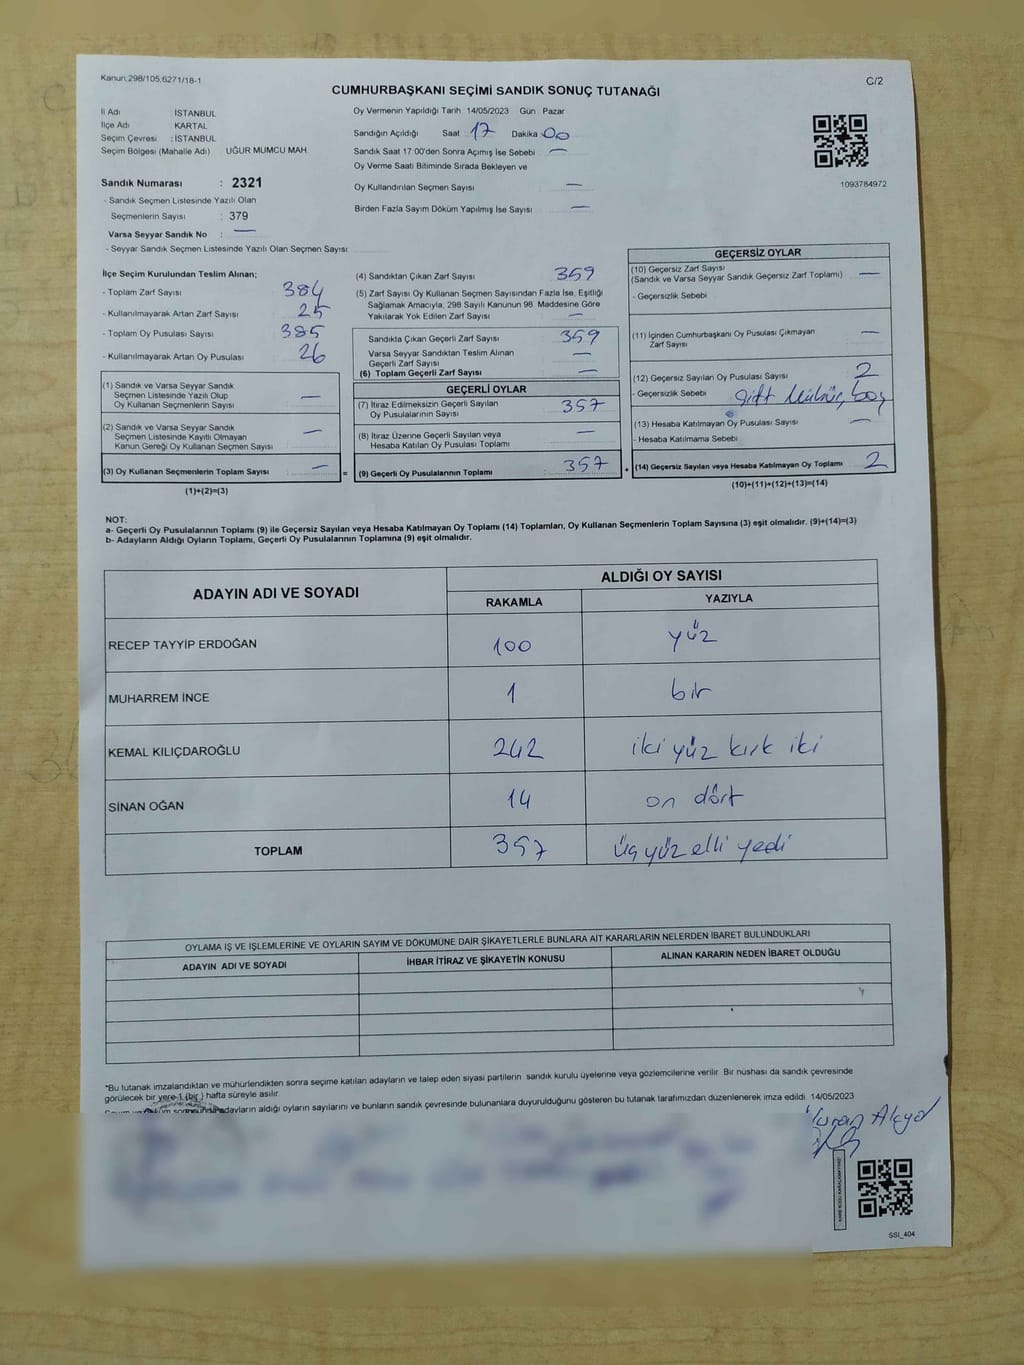 Kanun:298/105,6271/18-1
C/2
CUMHURBAŞKANI SEÇİMİ SANDIK SONUÇ TUTANAĞI
İl Adı : İSTANBUL
İlçe Adı : KARTAL
Seçim Çevresi : İSTANBUL
Seçim Bölgesi (Mahalle Adı) : UĞUR MUMCU MAH.
Sandık Numarası : 2321
- Sandık Seçmen Listesinde Yazılı Olan
Seçmenlerin Sayısı : 379
Varsa Seyyar Sandık No : —
- Seyyar Sandık Seçmen Listesinde Yazılı Olan Seçmen Sayısı
Oy Vermenin Yapıldığı Tarih : 14/05/2023 Gün : Pazar
Sandığın Açıldığı Saat : 17 Dakika : 00
Sandık Saat 17:00'den Sonra Açımış İse Sebebi : —
Oy Verme Saati Bitiminde Sırada Bekleyen ve
Oy Kullandırılan Seçmen Sayısı —
Birden Fazla Sayım Döküm Yapılmış İse Sayısı : —
1093784972
İlçe Seçim Kurulundan Teslim Alınan;
- Toplam Zarf Sayısı : 384
- Kullanılmayarak Artan Zarf Sayısı : 25
- Toplam Oy Pusulası Sayısı : 385
- Kullanılmayarak Artan Oy Pusulası : 26
(1) Sandık ve Varsa Seyyar Sandık
Seçmen Listesinde Yazılı Olup
Oy Kullanan Seçmenlerin Sayısı : —
(2) Sandık ve Varsa Seyyar Sandık
Seçmen Listesinde Kayıtlı Olmayan
Kanun Gereği Oy Kullanan Seçmen Sayısı : —
(3) Oy Kullanan Seçmenlerin Toplam Sayısı : — =
(1)+(2)=(3)
(4) Sandıktan Çıkan Zarf Sayısı : 359
(5) Zarf Sayısı Oy Kullanan Seçmen Sayısından Fazla İse, Eşitliği
Sağlamak Amacıyla, 298 Sayılı Kanunun 98. Maddesine Göre
Yakılarak Yok Edilen Zarf Sayısı : —
Sandıkta Çıkan Geçerli Zarf Sayısı : 359
Varsa Seyyar Sandıktan Teslim Alınan
Geçerli Zarf Sayısı : —
(6) Toplam Geçerli Zarf Sayısı : —
GEÇERLİ OYLAR
(7) İtiraz Edilmeksizin Geçerli Sayılan
Oy Pusulalarının Sayısı : 357
(8) İtiraz Üzerine Geçerli Sayılan veya
Hesaba Katılan Oy Pusulaları Toplamı : —
(9) Geçerli Oy Pusulalarının Toplamı : 357 +
GEÇERSİZ OYLAR
(10) Geçersiz Zarf Sayısı
(Sandık ve Varsa Seyyar Sandık Geçersiz Zarf Toplamı) : —
- Geçersizlik Sebebi
(11) İçinden Cumhurbaşkanı Oy Pusulası Çıkmayan
Zarf Sayısı : —
(12) Geçersiz Sayılan Oy Pusulası Sayısı : 2
- Geçersizlik Sebebi : çift Mühür, boş
(13) Hesaba Katılmayan Oy Pusulası Sayısı : —
- Hesaba Katılmama Sebebi
(14) Geçersiz Sayılan veya Hesaba Katılmayan Oy Toplamı : 2
(10)+(11)+(12)+(13)=(14)
NOT:
a- Geçerli Oy Pusulalarının Toplamı (9) ile Geçersiz Sayılan veya Hesaba Katılmayan Oy Toplamı (14) Toplamları, Oy Kullanan Seçmenlerin Toplam Sayısına (3) eşit olmalıdır. (9)+(14)=(3)
b- Adayların Aldığı Oyların Toplamı, Geçerli Oy Pusulalarının Toplamına (9) eşit olmalıdır.
ADAYIN ADI VE SOYADI ALDIĞI OY SAYISI
RAKAMLA YAZIYLA
RECEP TAYYİP ERDOĞAN 100 yüz
MUHARREM İNCE 1 bir
KEMAL KILIÇDAROĞLU 242 iki yüz kırk iki
SİNAN OĞAN 14 on dört
TOPLAM 357 üç yüz elli yedi
OYLAMA İŞ VE İŞLEMLERİNE VE OYLARIN SAYIM VE DÖKÜMÜNE DAİR ŞİKAYETLERLE BUNLARA AİT KARARLARIN NELERDEN İBARET BULUNDUKLARI
ADAYIN ADI VE SOYADI İHBAR İTİRAZ VE ŞİKAYETİN KONUSU ALINAN KARARIN NEDEN İBARET OLDUĞU
*Bu tutanak imzalandıktan ve mühürlendikten sonra seçime katılan adayların ve talep eden siyasi partilerin sandık kurulu üyelerine veya gözlemcilerine verilir. Bir nüshası da sandık çevresinde
görülecek bir yere 1 (bir) hafta süreyle asılır.
adayların aldığı oyların sayılarını ve bunların sandık çevresinde bulunanlara duyurulduğunu gösteren bu tutanak tarafımızdan düzenlenerek imza edildi. 14/05/2023
SSI_404